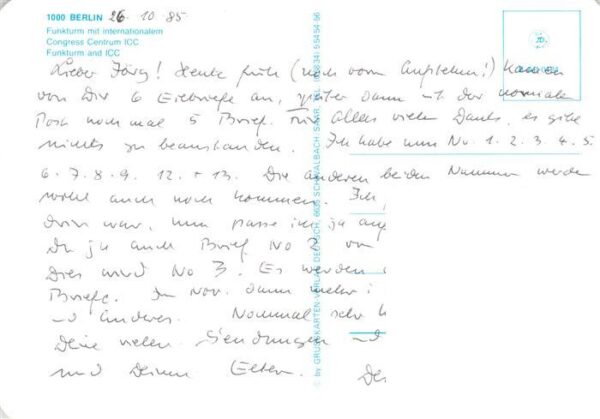 1000 BERLIN 26. 10. 85
Funkturm mit internationalem
Congress Centrum ICC
Funkturm and ICC
Lieber Jörg! Heute früh (noch vorm Aufstehen!) kamen
von Dir 6 Eilbriefe an, später dann mit der normalen
Post noch mal 5 Briefe. Für alles vielen Dank, es gibt
nichts zu beanstanden. Ich habe nun No. 1. 2. 3. 4. 5.
6. 7. 8. 9. 12. + 13. Die anderen beiden Nummern werden
wohl auch noch kommen. Ich
drin war, nun passe ich ja auf
Du ja auch Brief No 2 von
Dies wird No 3. Es werden
Briefe. Im Nov. dann mehr
und anderes. Nochmal sehr
Deine vielen Sendungen und
und Deinen Eltern. Dei
© by GRUSSKARTEN-VERLAG DEUTSCH, 6635 SCHWALBACH/SAAR, TEL. (06834) 5 54 54-96